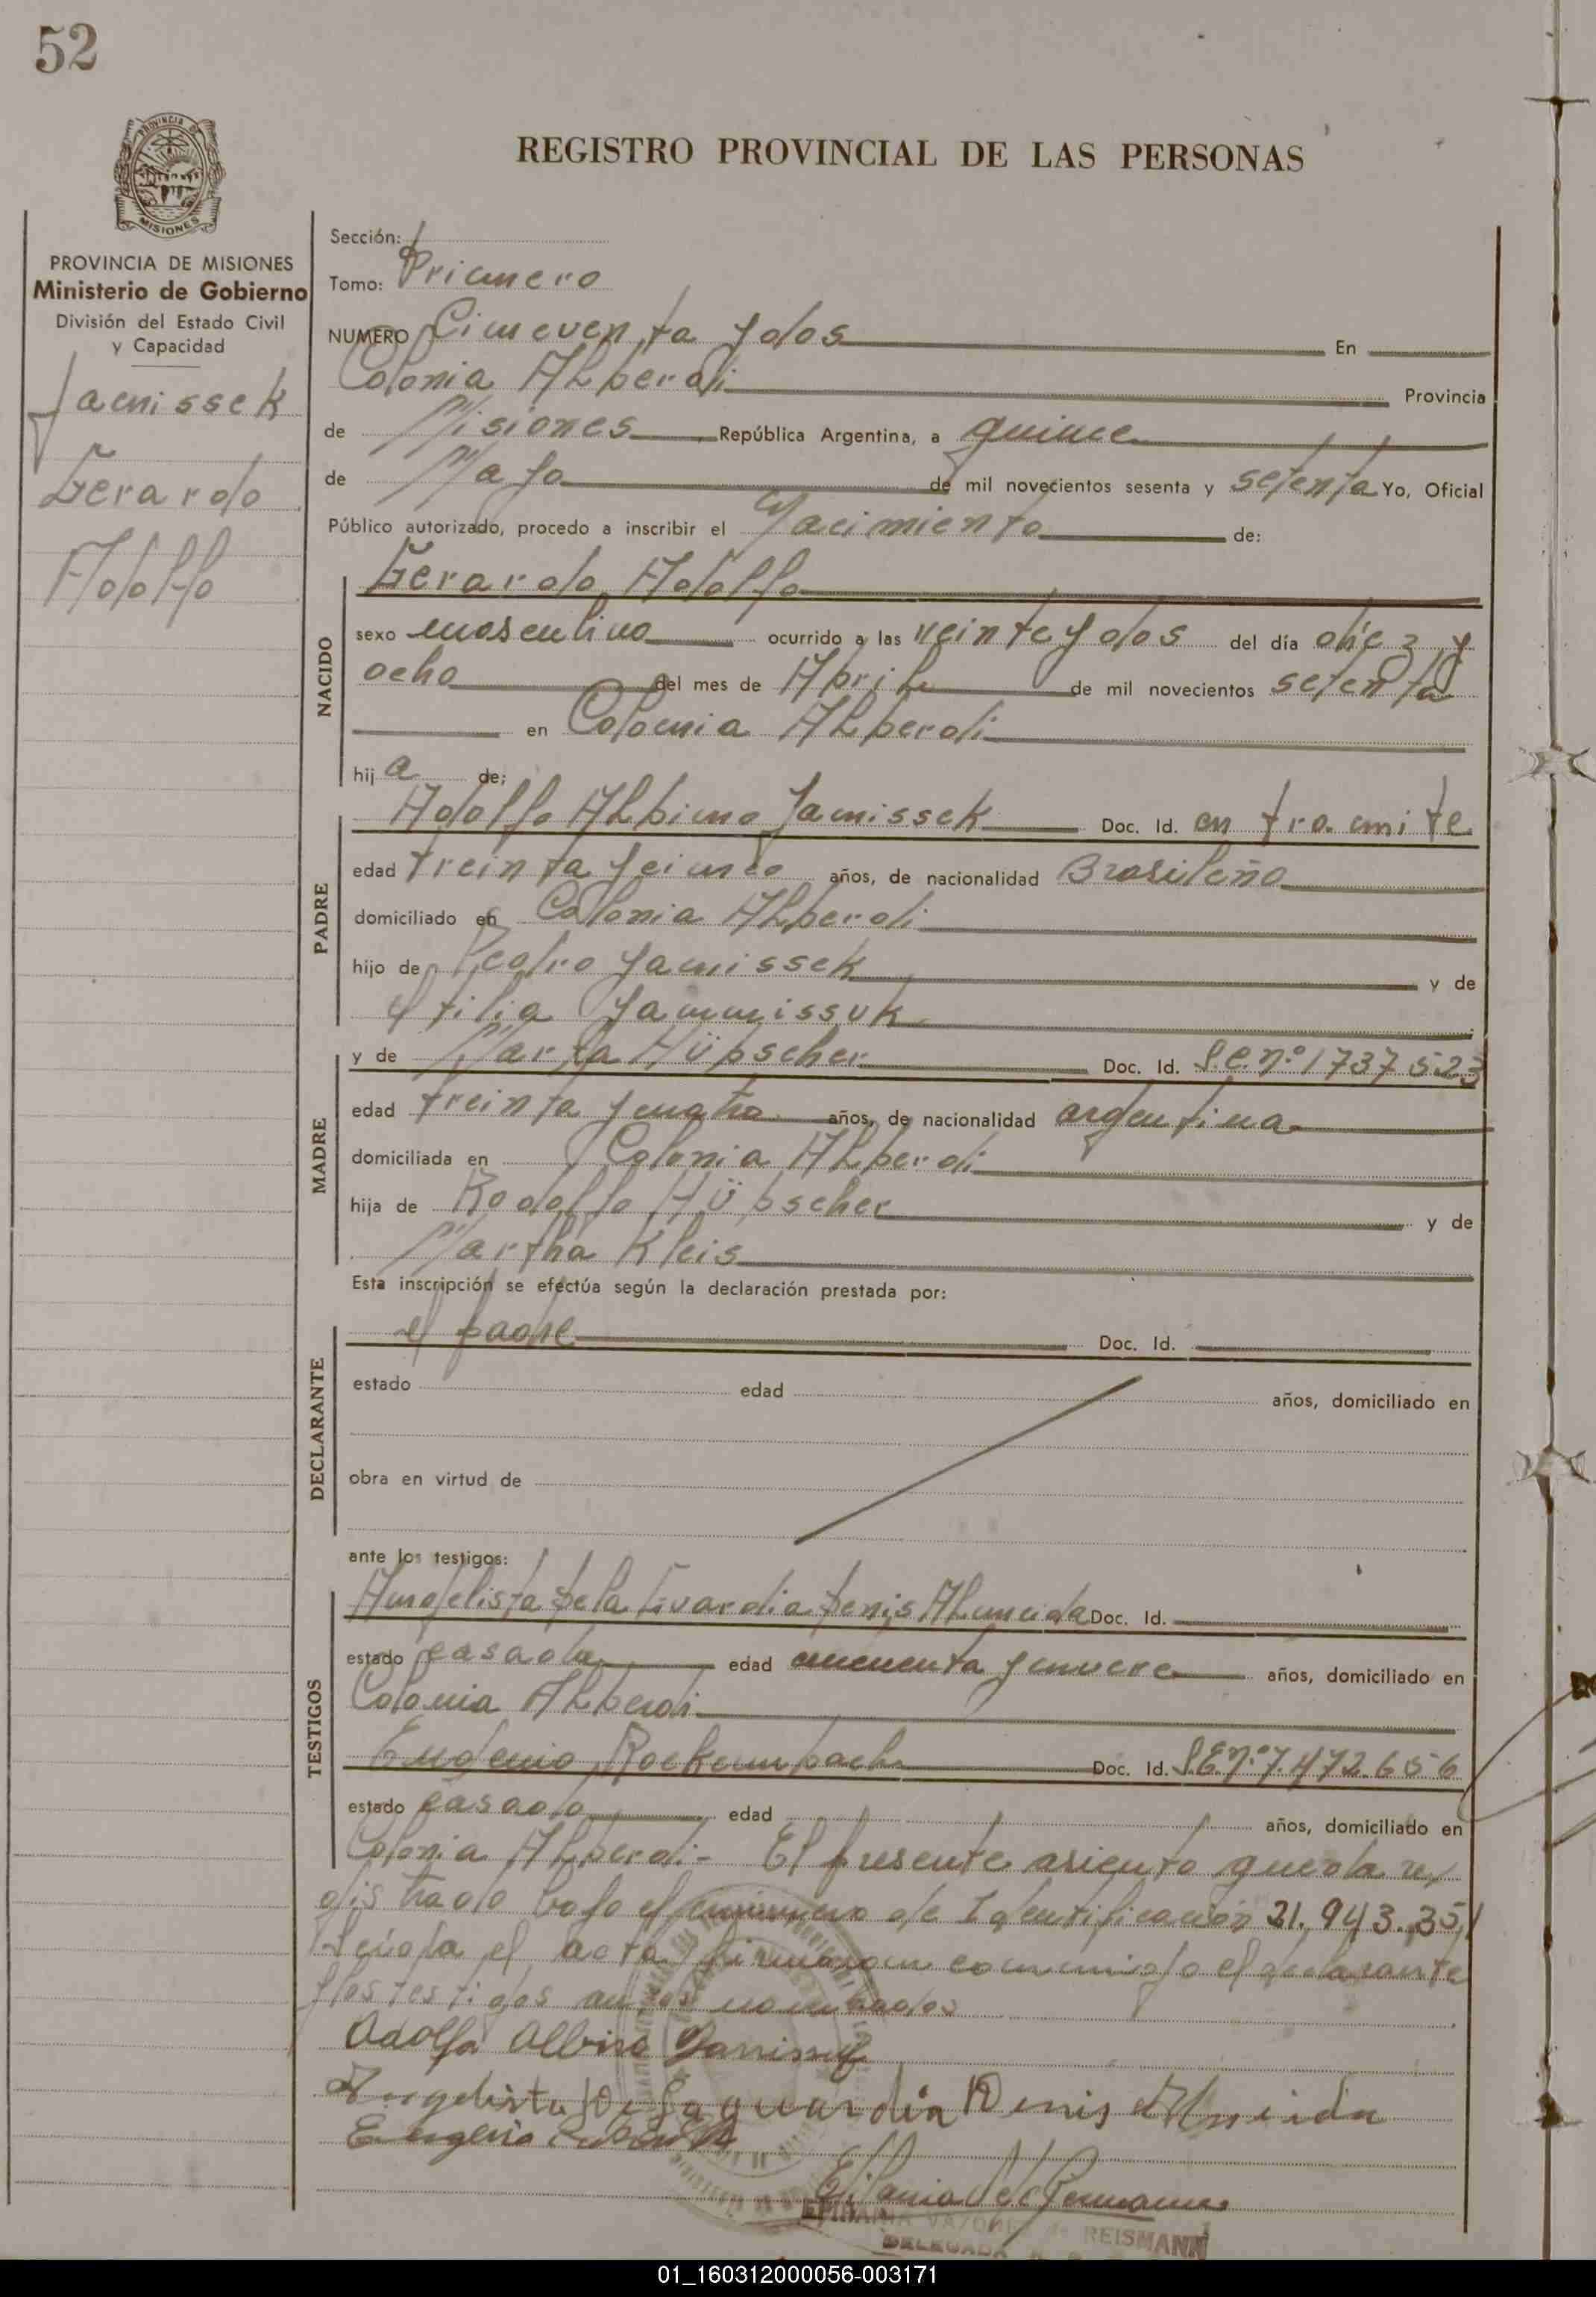 52
PROVINCIA DE
MISIONES
REGISTRO PROVINCIAL DE LAS PERSONAS
PROVINCIA DE MISIONES
Ministerio de Gobierno
División del Estado Civil
y Capacidad
Janissek
Gerardo
Adolfo
Sección:
Tomo: Primero
NUMERO Cincuenta y dos En
Colonia Alberdi Provincia
de Misiones República Argentina, a quince
de Mayo de mil novecientos sesenta y setenta Yo, Oficial
Público autorizado, procedo a inscribir el Nacimiento de:
NACIDO
Gerardo Adolfo
sexo masculino ocurrido a las veinte y dos del día diez y
ocho del mes de Abril de mil novecientos setenta
en Colonia Alberdi
hij a de:
PADRE
Adolfo Albino Janissek Doc. Id. en tramite
edad treinta y cinco años, de nacionalidad Brasileña
domiciliado en Colonia Alberdi
hijo de Pedro Janissek y de
MADRE
y de Marta Hübscher Doc. Id. L.C. n.º 1737523
edad treinta y cuatro años, de nacionalidad argentina
domiciliada en Colonia Alberdi
hija de Rodolfo Hübscher y de
Martha Kleis
Esta inscripción se efectúa según la declaración prestada por:
DECLARANTE
el padre Doc. Id.
estado edad años, domiciliado en
obra en virtud de
ante los testigos:
TESTIGOS
Angelista de la Guardia Denis Almeida Doc. Id.
estado casada edad cincuenta y nueve años, domiciliado en
Colonia Alberdi
Eugenio Rockembach Doc. Id. L.E. n.º 7.472.656
estado casado edad años, domiciliado en
Colonia Alberdi - El presente asiento queda re
gistrado bajo el número de Identificación 21.943.351
Leida el acta firmaron conmigo el declarante
y los testigos nombrados
Adolfo Albino Janissek
Angelista De Laguardia Denis Almeida
Eugenio
REISMANN
DELEGADA
01_160312000056-003171